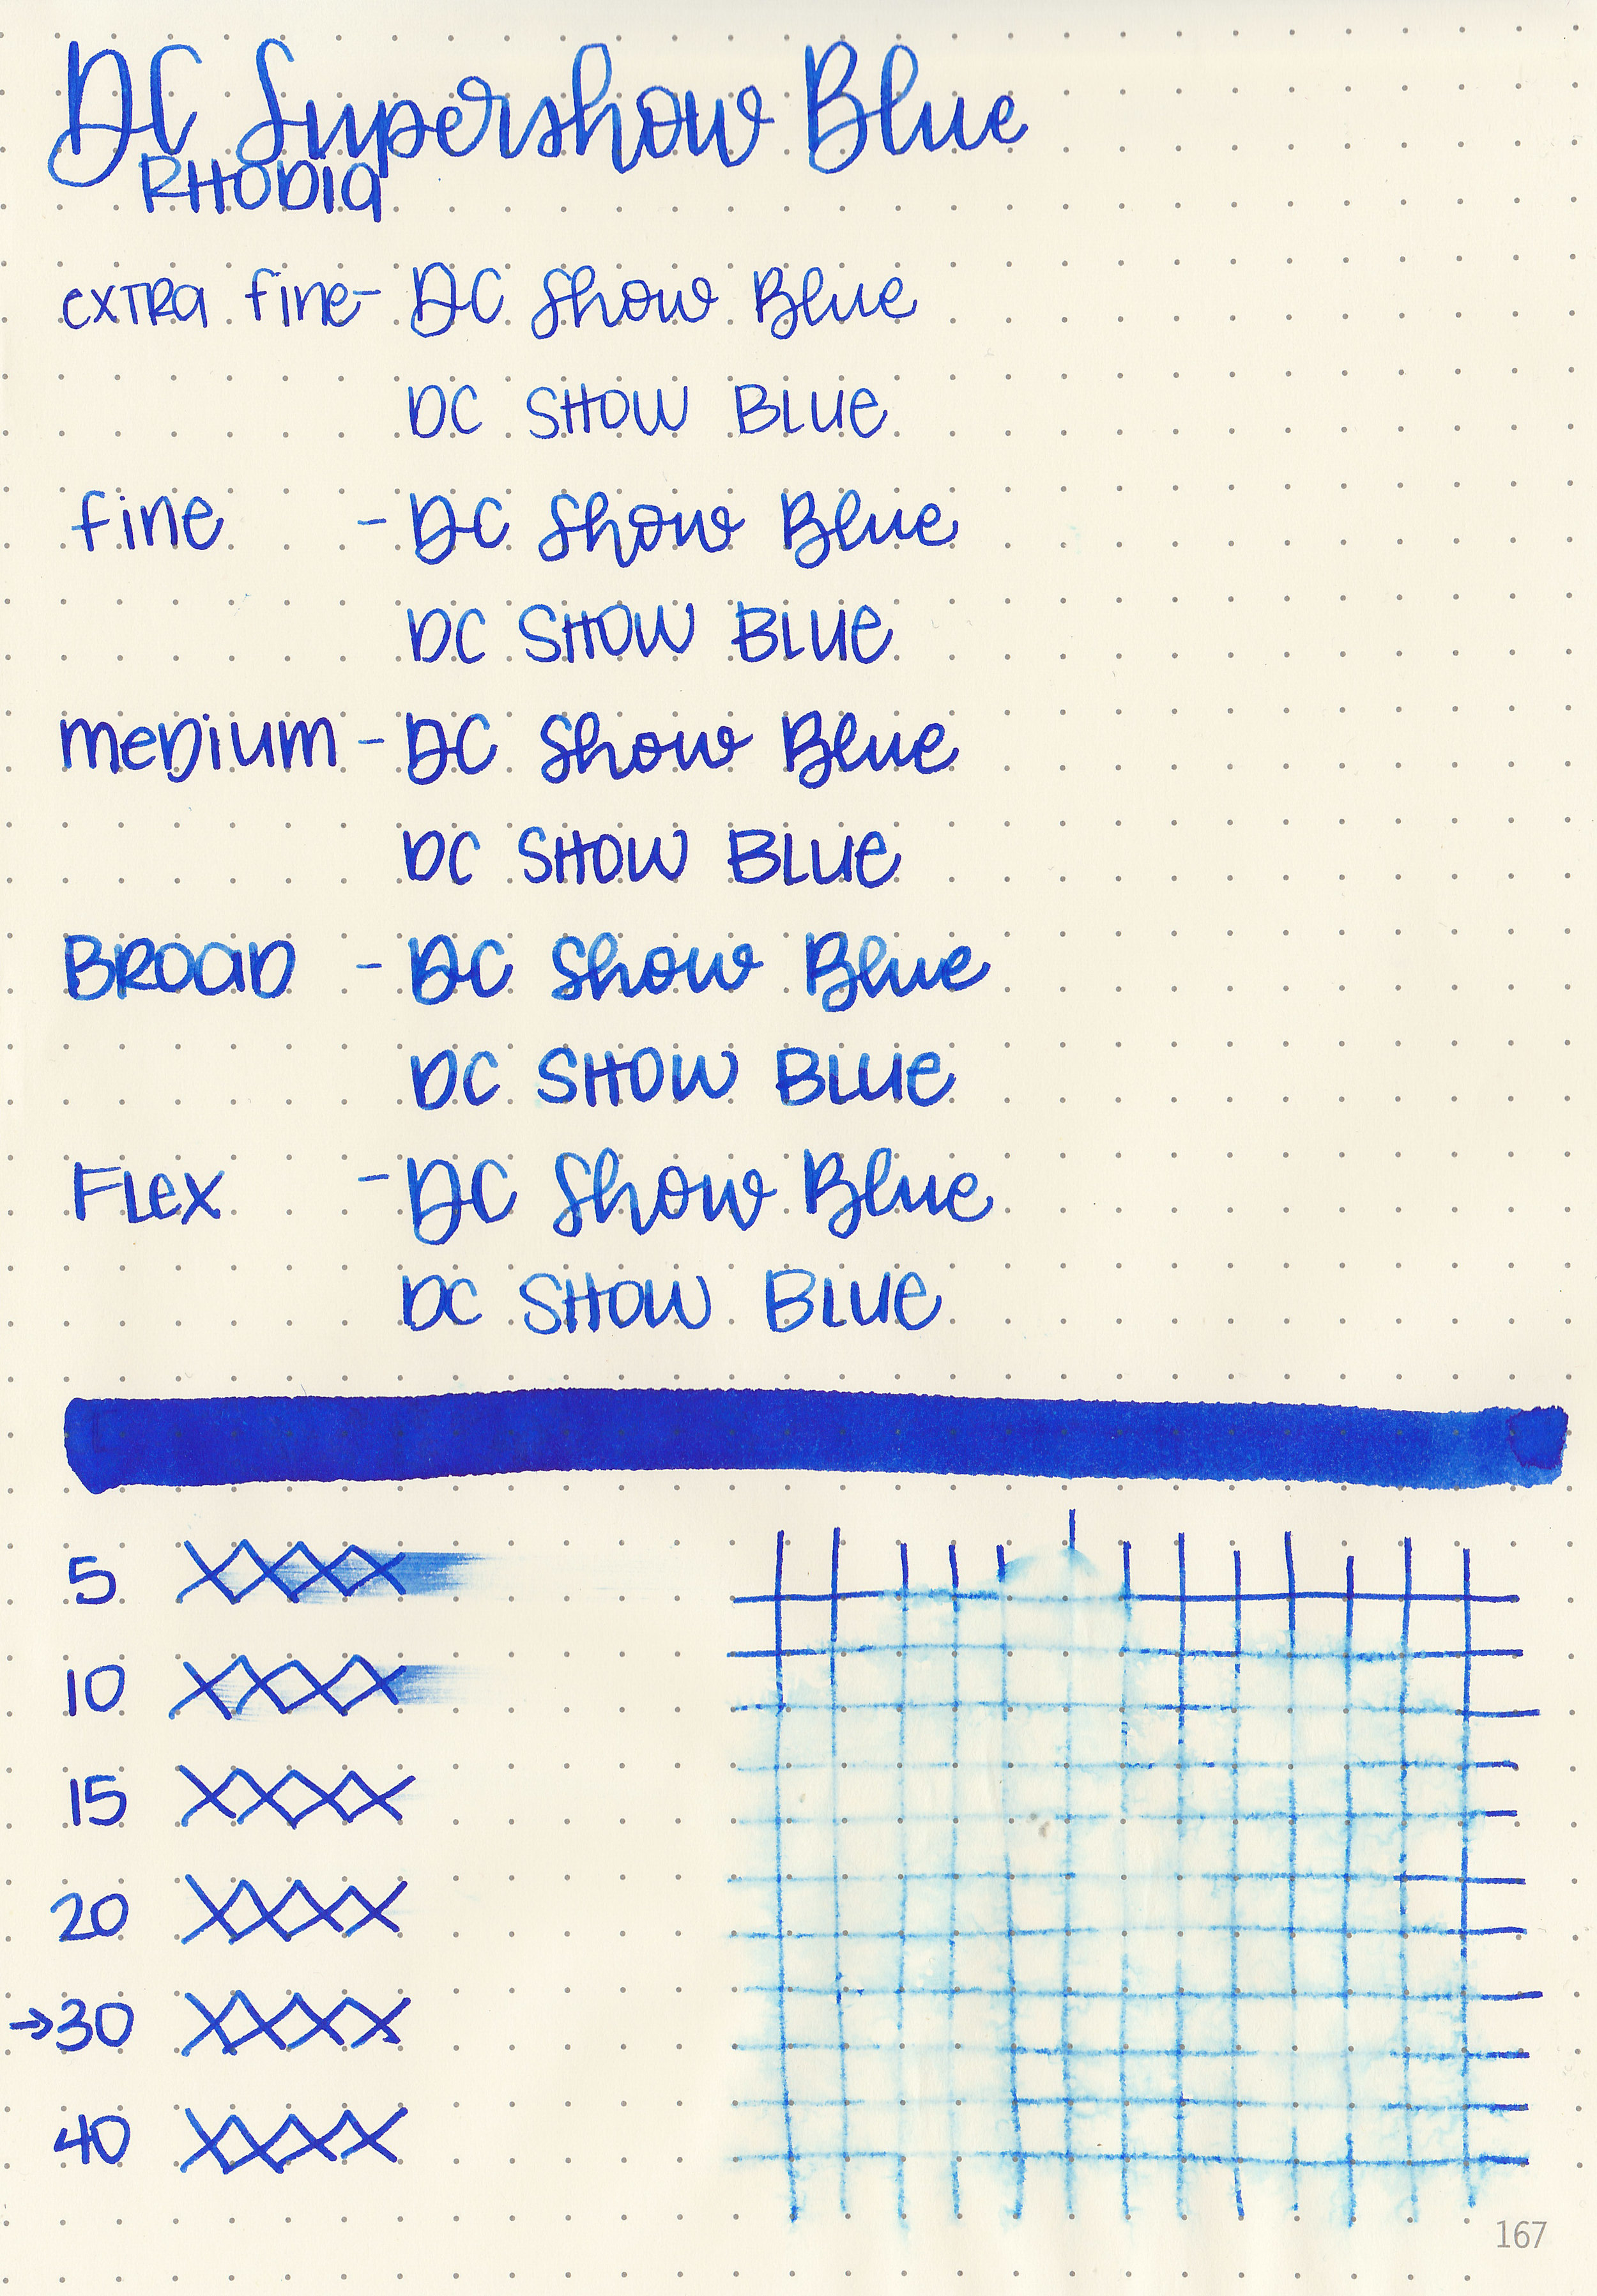 DC Supershow Blue
RHODIA
extra fine- DC Show Blue
DC SHOW BLUE
fine - DC Show Blue
DC SHOW BLUE
medium - DC Show Blue
DC SHOW BLUE
BROAD - DC Show Blue
DC SHOW BLUE
FLex - DC Show Blue
DC SHOW BLUE
5 XXXX
10 XXXX
15 XXXX
20 XXXX
→30 XXXX
40 XXXX
167